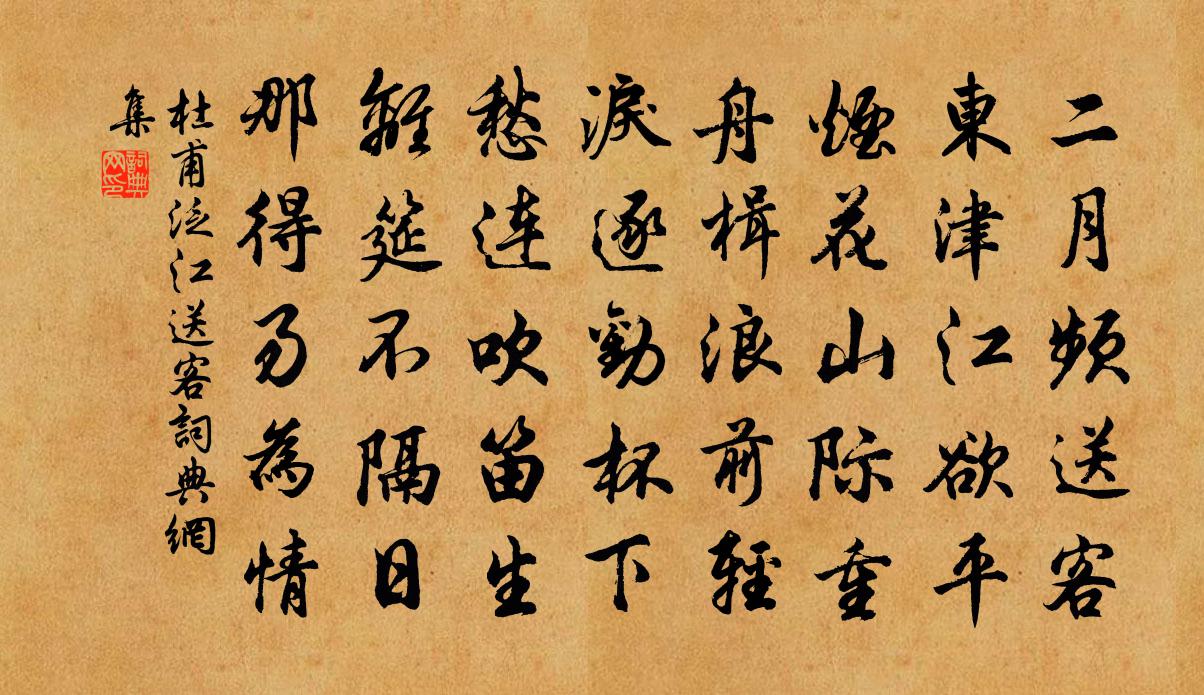 二月頻送客
東津江欲平
煙花山際重
舟楫浪前輕
淚逐勸杯下
愁連吹笛生
離筵不隔日
那得易為情
杜甫泛江送客詞典網
集
詞典
网印